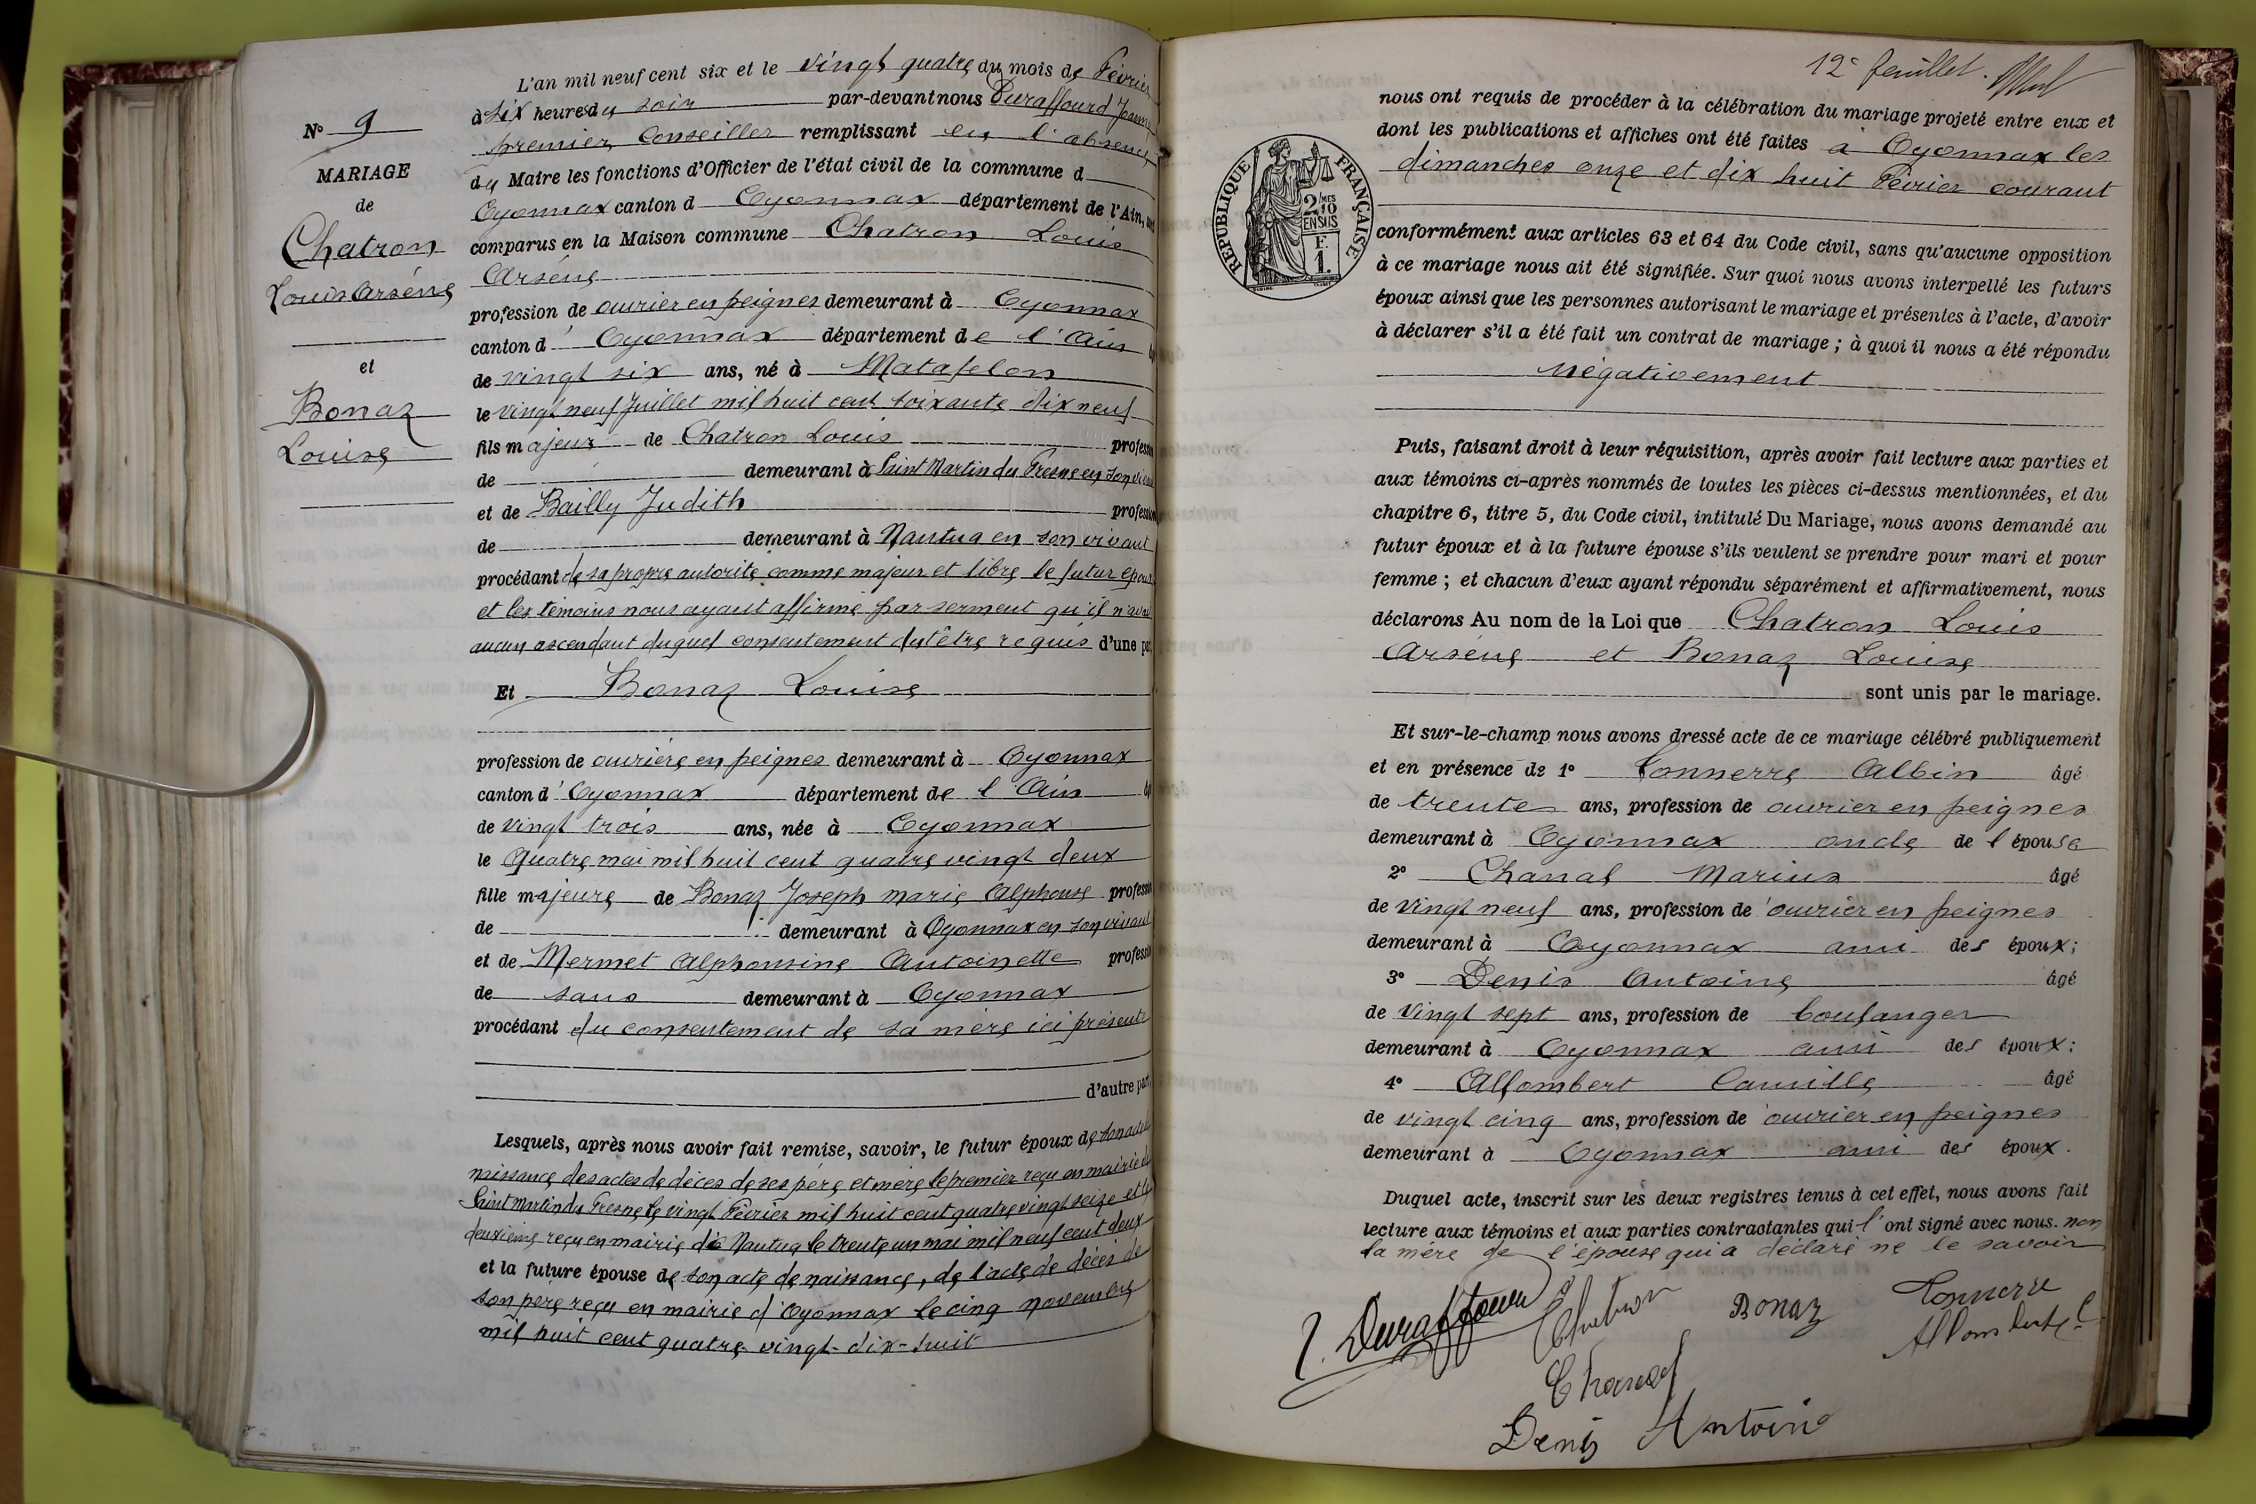 N° 9
MARIAGE
de
Chatron
Louis Arsène
et
Bonaz
Louise
L'an mil neuf cent six et le vingt quatre du mois de Février
à six heures du soir par-devant nous Duraffourd
premier Conseiller remplissant en l'absence
du Maire les fonctions d'Officier de l'état civil de la commune d
Oyonnax canton d Oyonnax département de l'Ain, sont
comparus en la Maison commune Chatron Louis
Arsène
profession de ouvrier en peignes demeurant à Oyonnax
canton d' Oyonnax département de l'Ain
de vingt six ans, né à Matafelon
le vingt neuf Juillet mil huit cent soixante dix neuf
fils majeur de Chatron Louis profession
de demeurant à Saint Martin du Fresne en son vivant
et de Bailly Judith profession
de demeurant à Nantua en son vivant
procédant de sa propre autorité comme majeur et libre le futur époux
et les témoins nous ayant affirmé par serment qu'il n'avait
aucun ascendant duquel consentement dut être requis d'une part
Et Bonaz Louise
profession de ouvrière en peignes demeurant à Oyonnax
canton d' Oyonnax département de l'Ain
de vingt trois ans, née à Oyonnax
le quatre mai mil huit cent quatre vingt deux
fille majeure de Bonaz Joseph Marie Alphonse profession
de demeurant à Oyonnax en son vivant
et de Mermet Alphonsine Antoinette profession
de sans demeurant à Oyonnax
procédant du consentement de sa mère ici présente
d'autre part,
Lesquels, après nous avoir fait remise, savoir, le futur époux de son acte de
naissance des actes de décès de ses père et mère le premier reçu en mairie de
Saint Martin du Fresne le vingt Février mil huit cent quatre vingt seize et le
deuxième reçu en mairie de Nantua le trente un mai mil neuf cent deux
et la future épouse de son acte de naissance, de l'acte de décès de
son père reçu en mairie d'Oyonnax le cinq novembre
mil huit cent quatre-vingt-dix-huit
12e feuillet.
RÉPUBLIQUE FRANÇAISE
2/10MES
EN SUS
F.
1.
nous ont requis de procéder à la célébration du mariage projeté entre eux et
dont les publications et affiches ont été faites à Oyonnax les
dimanches onze et dix huit Février courant
conformément aux articles 63 et 64 du Code civil, sans qu'aucune opposition
à ce mariage nous ait été signifiée. Sur quoi nous avons interpellé les futurs
époux ainsi que les personnes autorisant le mariage et présentes à l'acte, d'avoir
à déclarer s'il a été fait un contrat de mariage ; à quoi il nous a été répondu
négativement
Puis, faisant droit à leur réquisition, après avoir fait lecture aux parties et
aux témoins ci-après nommés de toutes les pièces ci-dessus mentionnées, et du
chapitre 6, titre 5, du Code civil, intitulé Du Mariage, nous avons demandé au
futur époux et à la future épouse s'ils veulent se prendre pour mari et pour
femme ; et chacun d'eux ayant répondu séparément et affirmativement, nous
déclarons Au nom de la Loi que Chatron Louis
Arsène et Bonaz Louise
sont unis par le mariage.
Et sur-le-champ nous avons dressé acte de ce mariage célébré publiquement
et en présence de 1° Tonnerre Albin âgé
de trente ans, profession de ouvrier en peignes
demeurant à Oyonnax oncle de l'épouse
2° Chanal Marius âgé
de vingt neuf ans, profession de ouvrier en peignes
demeurant à Oyonnax ami des époux ;
3° Denis Antoine âgé
de vingt sept ans, profession de boulanger
demeurant à Oyonnax ami des époux ;
4° Allombert Camille âgé
de vingt cinq ans, profession de ouvrier en peignes
demeurant à Oyonnax ami des époux.
Duquel acte, inscrit sur les deux registres tenus à cet effet, nous avons fait
lecture aux témoins et aux parties contractantes qui l'ont signé avec nous. non
la mère de l'épouse qui a déclaré ne le savoir
J. Duraffourd Chatron Bonaz Tonnerre
Allombert C.
Chanal
Denis Antoine